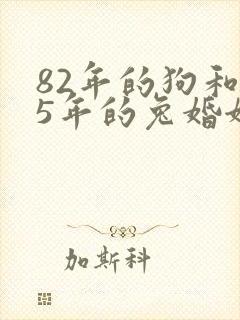 82年的狗和
5年的兔婚
加斯科